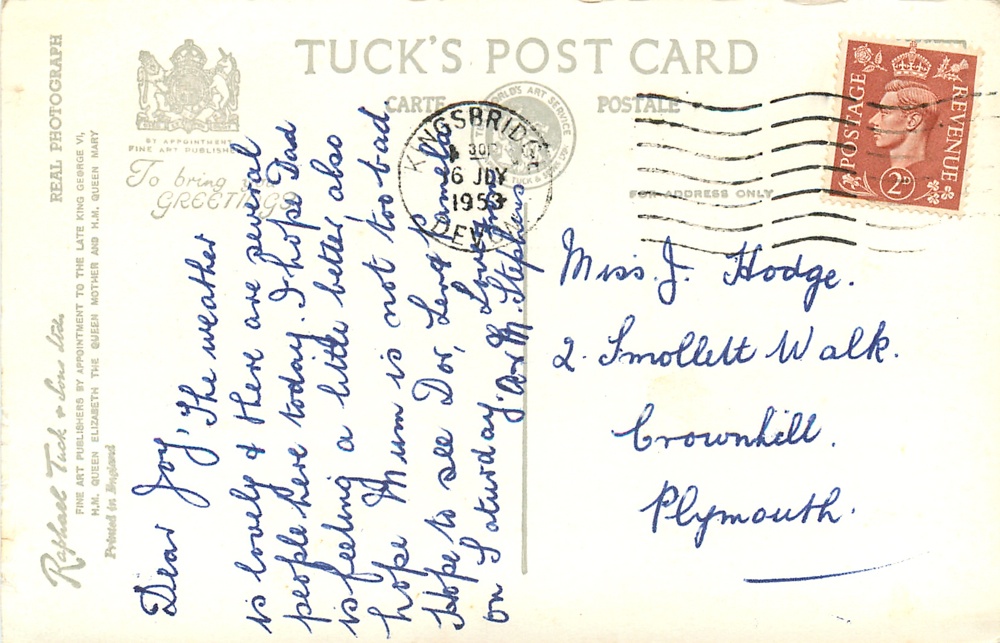 TUCK'S POST CARD
CARTE POSTALE
BY APPOINTMENT
FINE ART PUBLISHERS
To bring you
GREETINGS
FOR ADDRESS ONLY
REAL PHOTOGRAPH
Raphael Tuck & Sons Ltd.
FINE ART PUBLISHERS BY APPOINTMENT TO THE LATE KING GEORGE VI,
H.M. QUEEN ELIZABETH THE QUEEN MOTHER AND H.M. QUEEN MARY
Printed in England
KINGSBRIDGE
6 JLY
1953
DEVON
POSTAGE
REVENUE
2D
Dear Joy, The weather
is lovely & there are several
people here today. I hope Dad
is feeling a little better, also
hope Mum is not too bad
Hope to see Dor, Len & Pamela
on Saturday, Love from
M. Stephens
Miss. J. Hodge.
2. Smollett Walk.
Crownhill.
Plymouth.